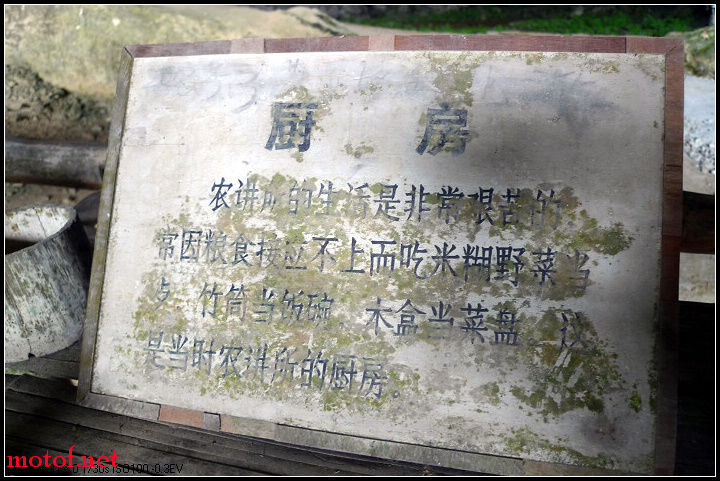 厨 房
农讲所的生活是非常艰苦的
常因粮食接应不上而吃米糊野菜当
竹筒当饭碗、木盒当菜盘、这
是当时农讲所的厨房。
motof.net
1/30s ISO100 -0.3EV